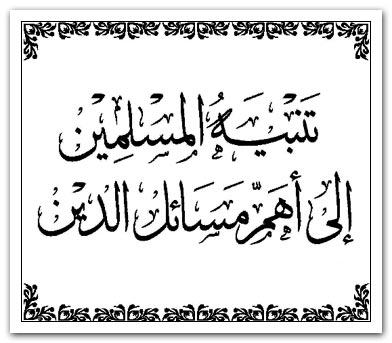 تَنْبِيهُ المُسْلِمِين
إلى أَهَمِّ مَسَائِل الدين